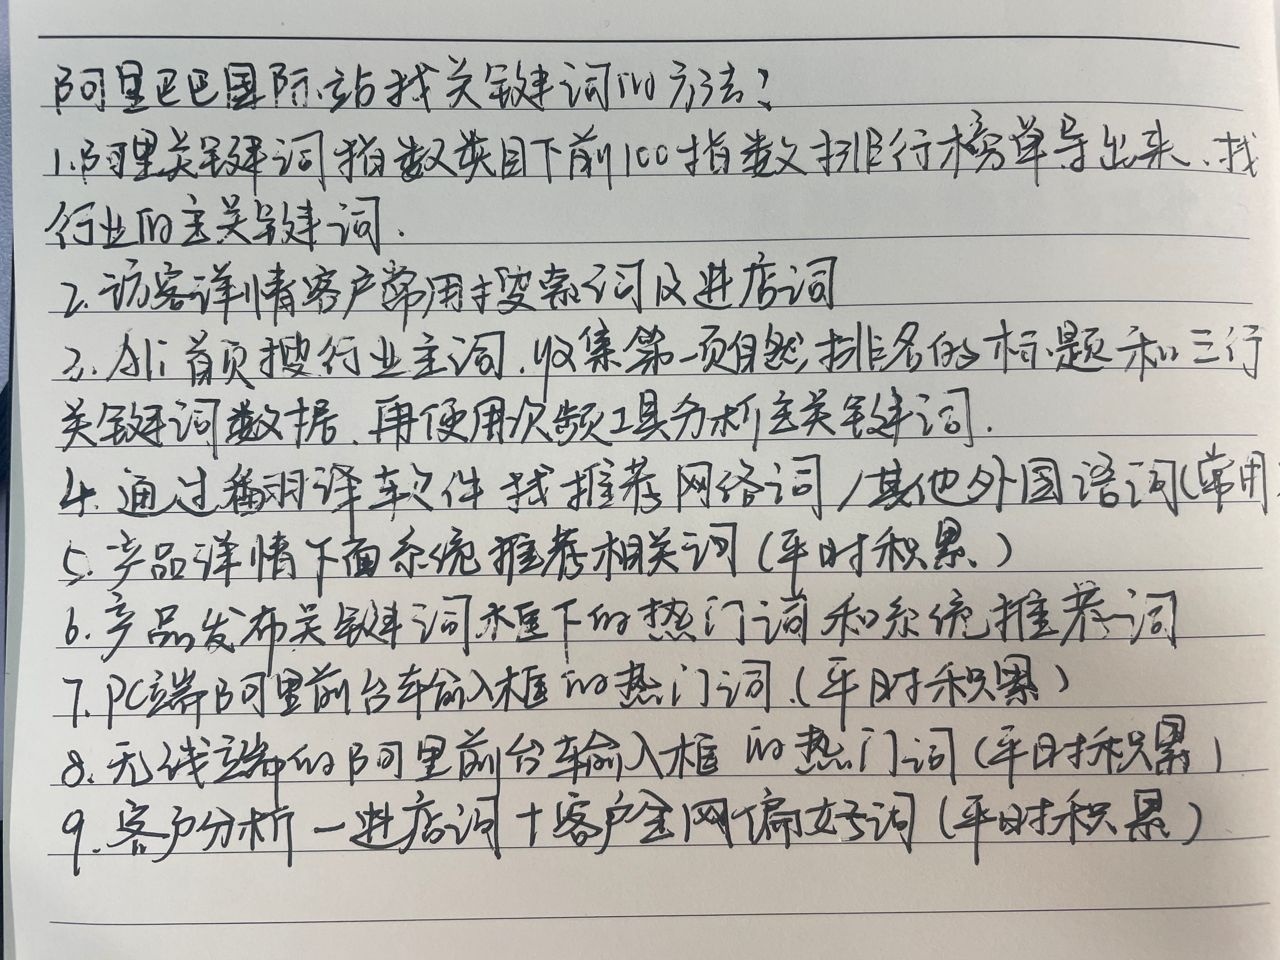 阿里巴巴国际站找关键词的方法？
1.阿里关键词指数类目下前100指数排行榜单导出来、找
行业的主关键词.
2.访客详情客户常用搜索词及进店词
3.Ali首页搜行业主词.收集第一项自然排名的标题和三行
关键词数据、再使用次频工具分析主关键词.
4.通过翻译软件找推荐网络词/其他外国语词(常用
5.产品详情下面系统推荐相关词(平时积累、)
6.产品发布关键词框下的热门词和系统推荐词
7.PC端阿里前台车输入框的热门词.(平时积累)
8.无线端的阿里前台车输入框的热门词(平时积累)
9.客户分析一进店词+客户全网偏好词(平时积累)